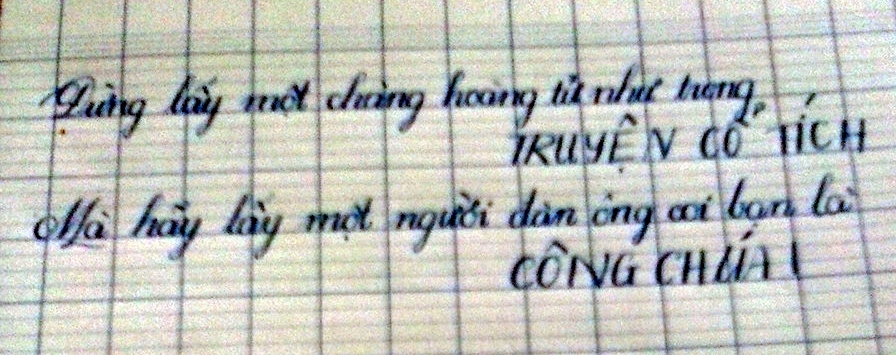 Đừng lấy một chàng hoàng tử như trong
TRUYỆN CỔ TÍCH
Mà hãy lấy một người đàn ông coi bạn là
CÔNG CHÚA!